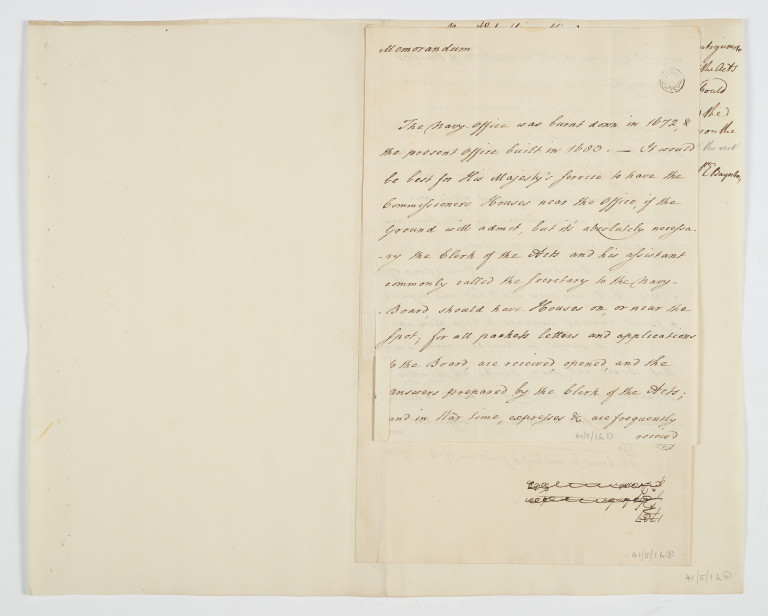 Memorandum
The Navy Office was burnt down in 1672, &
the present Office built in 1683. — It would
be best for His Majesty's Service to have the
Commissioners Houses near the Office, if the
Ground will admit, but it's absolutely necessa-
-ry the Clerk of the Acts and his assistant
commonly called the Secretary to the Navy-
-Board, should have Houses on, or near the
spot; for all packets letters and applications
to the Board, are received, opened, and the
answers prepared by the Clerk of the Acts;
and in War time, expresses &c are frequently
41/5/14
receiv'd
the Acts
Could
the
on the
41/5/14
41/5/14